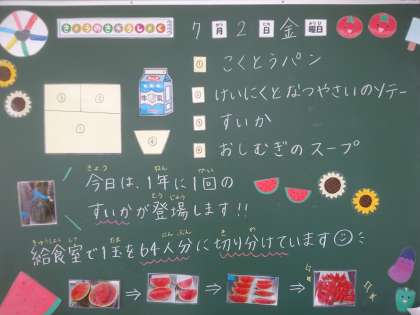 きょうのきゅうしょく
7月2日金曜日
① こくとうパン
② けいにくとなつやさいのソテー
③ すいか
④ おしむぎのスープ
今日は、1年に1回の
すいかが登場します!!
給食室で1玉を64人分に切り分けています